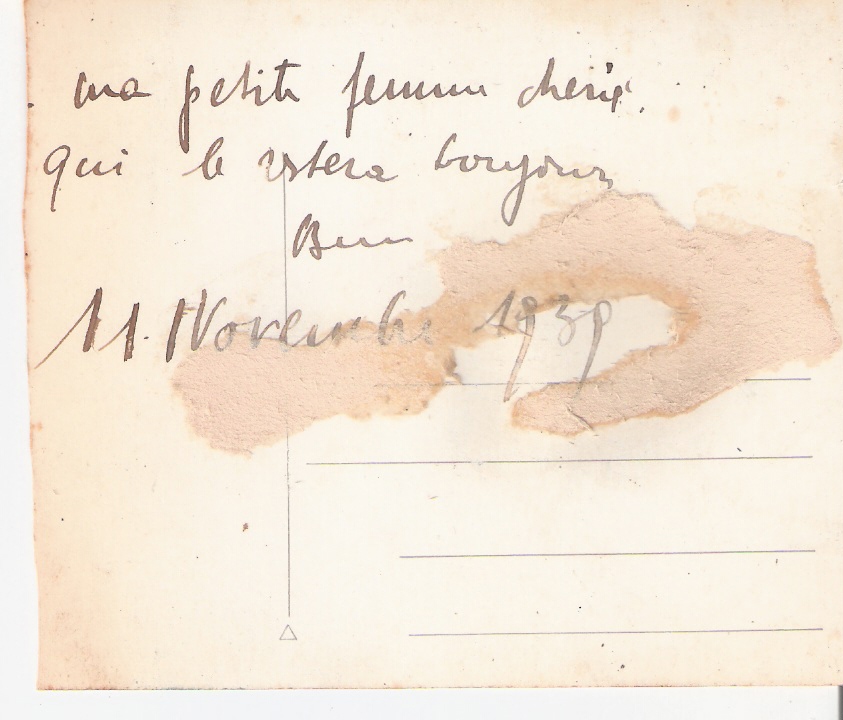 ma petite femme chérie.
qui le restera toujours
11. Novembre 1939